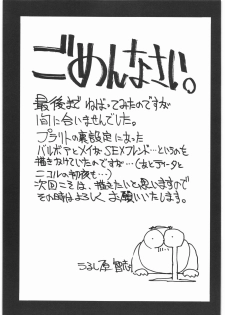 ごめんなさい。
最後までねばってみたのですが
間に合いませんでした。
プラリトの裏設定になった
バルボアとメイなSEXフレンド…というのを
描きかけていたのですが…(あとディータと
ニコルの初夜も…)
次回こそは、描きたいと思いますので
その時はよろしく、お願いいたします。
うるし原 智志